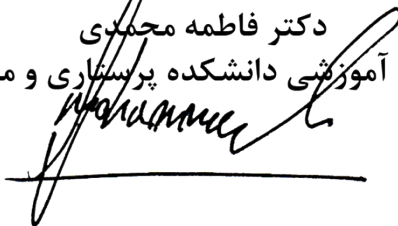 دکتر فاطمه محمدی
آموزشی دانشکده پرستاری و